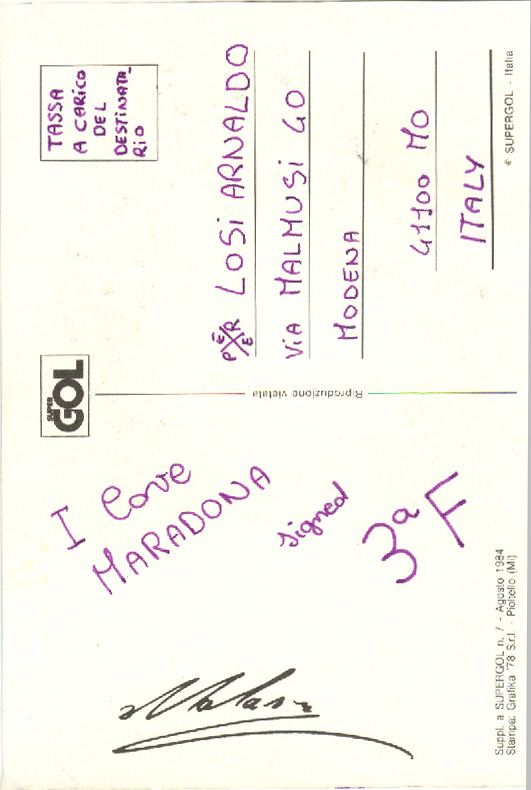 SUPER
GOL
TASSA
A CARICO
DEL
DESTINATA-
RIO
I love
MARADONA
signed
3ª F
PER LOSI ARNALDO
ViA MALMUSi 40
MODENA
41100 MO
ITALY
Riproduzione vietata
Suppl. a SUPERGOL n. 7 - Agosto 1984
Stampa: Grafika '78 S.r.l. - Pioltello (MI)
© SUPERGOL - Italia